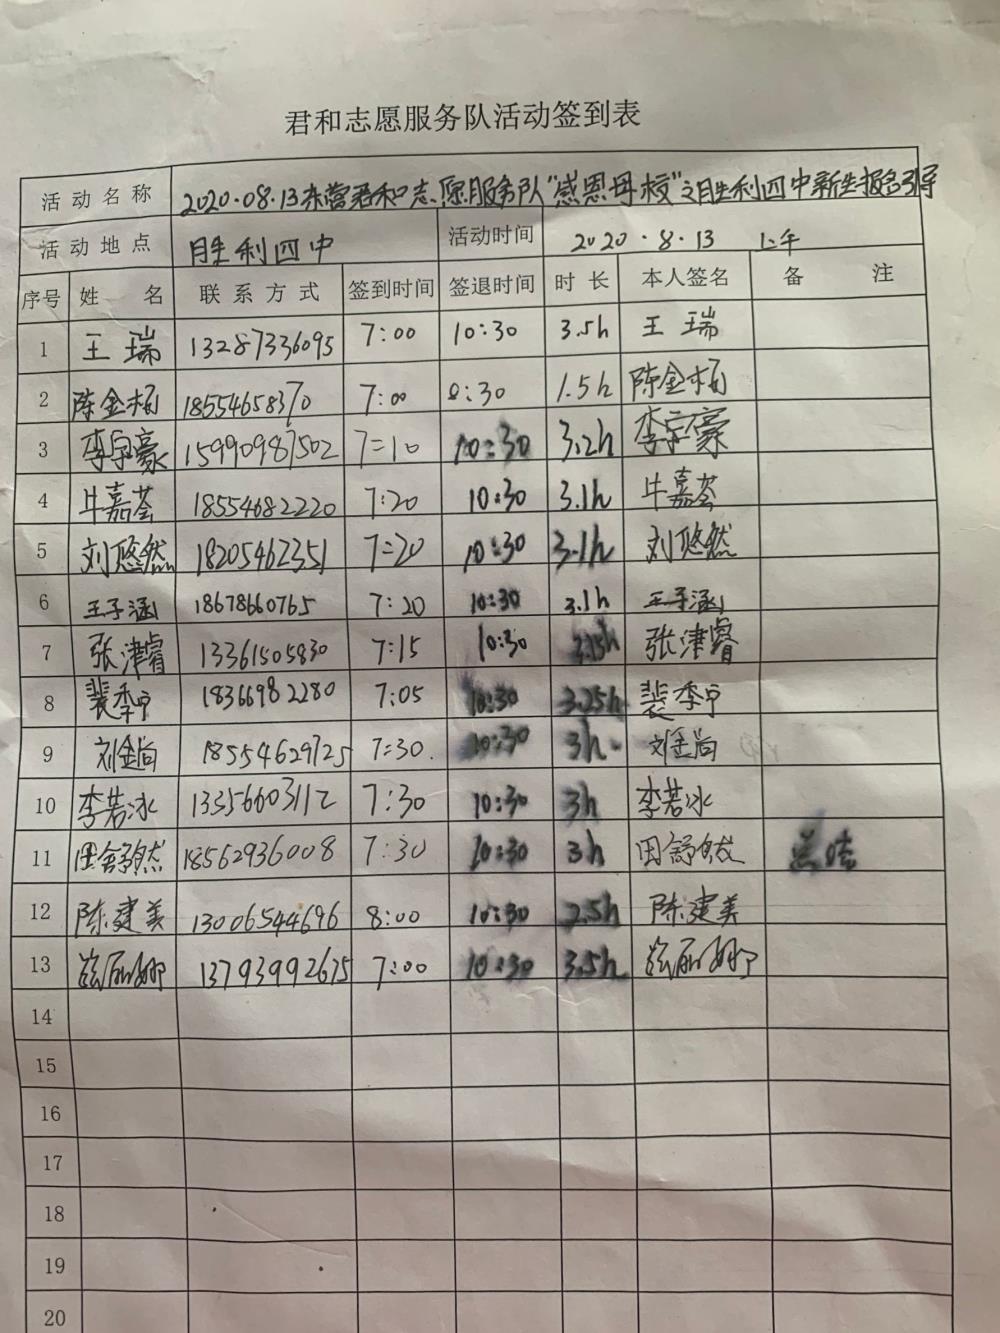 君和志愿服务队活动签到表
活动名称 2020.08.13东营君和志愿服务队"感恩母校"之胜利四中新生报名引导
活动地点 胜利四中 活动时间 2020.8.13 上午
序号 姓名 联系方式 签到时间 签退时间 时长 本人签名 备注
1 王瑞 13287336095 7:00 10:30 3.5h 王瑞
2 陈金杨 18554658370 7:00 8:30 1.5h 陈金杨
3 李宗豪 15990987502 7:10 10:30 3.2h 李宗豪
4 牛嘉荟 18554682220 7:20 10:30 3.1h 牛嘉荟
5 刘悠然 18205462351 7:20 10:30 3.1h 刘悠然
6 王子涵 18678660765 7:20 10:30 3.1h 王子涵
7 张津睿 13361505830 7:15 10:30 张津睿
8 裴季 18366982280 7:05 10:30 3.25h 裴季
9 刘金尚 18554629725 7:30 10:30 3h 刘金尚
10 李若冰 13356603112 7:30 10:30 3h 李若冰
11 田舒然 18562936008 7:30 10:30 3h 田舒然 总结
12 陈建美 13006544696 8:00 10:30 2.5h 陈建美
13 丽娜 13793992675 7:00 10:30 3.5h 丽娜
14
15
16
17
18
19
20